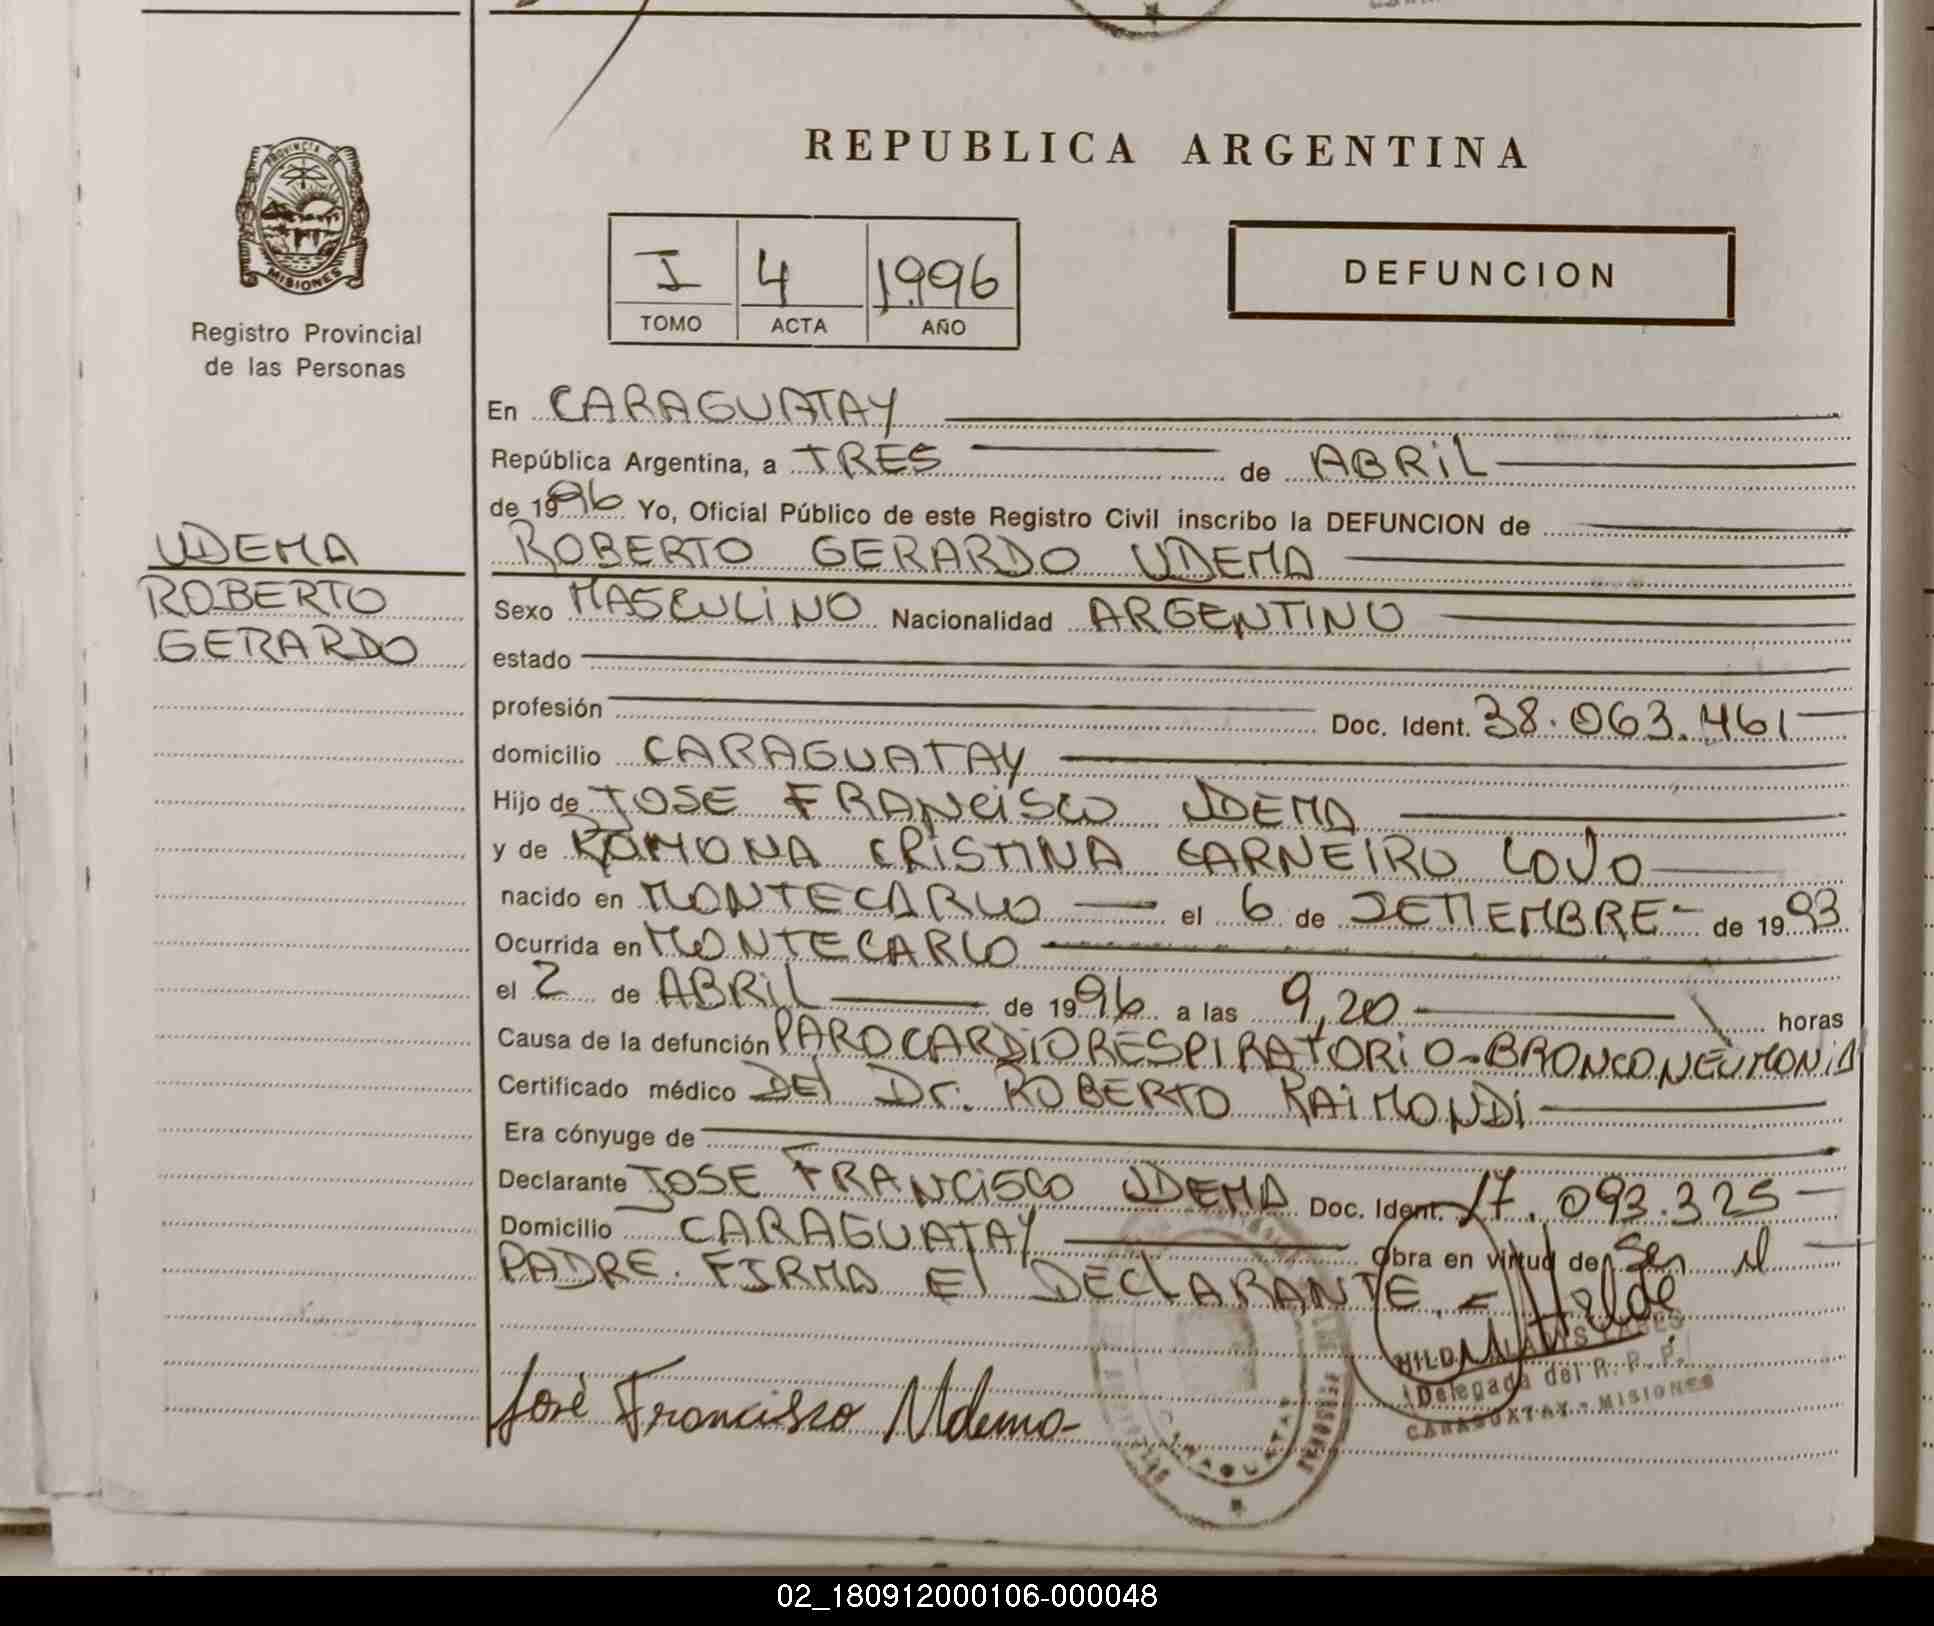 PROVINCIA DE
MISIONES
Registro Provincial
de las Personas
REPUBLICA ARGENTINA
I 4 1996
TOMO ACTA AÑO
DEFUNCION
En CARAGUATAY
República Argentina, a TRES de ABRIL
de 1996 Yo, Oficial Público de este Registro Civil inscribo la DEFUNCION de
UDEMA
ROBERTO
GERARDO
ROBERTO GERARDO UDEMA
Sexo MASCULINO Nacionalidad ARGENTINO
estado
profesión Doc. Ident. 38.063.461
domicilio CARAGUATAY
Hijo de JOSE FRANCISCO UDEMA
y de RAMONA CRISTINA CARNEIRO LOVO
nacido en MONTECARLO el 6 de SETIEMBRE de 1993
Ocurrida en MONTECARLO
el 2 de ABRIL de 1996 a las 9,20 horas
Causa de la defunción PARO CARDIORESPIRATORIO-BRONCONEUMONIA
Certificado médico DEL Dr. ROBERTO RAIMONDI
Era cónyuge de
Declarante JOSE FRANCISCO UDEMA Doc. Ident. 17.093.325
Domicilio CARAGUATAY Obra en virtud de Ser el
PADRE. FIRMA El DECLARANTE.
José Francisco Udema
Delegada del R. P. P.
CARAGUATAY - MISIONES
02_180912000106-000048